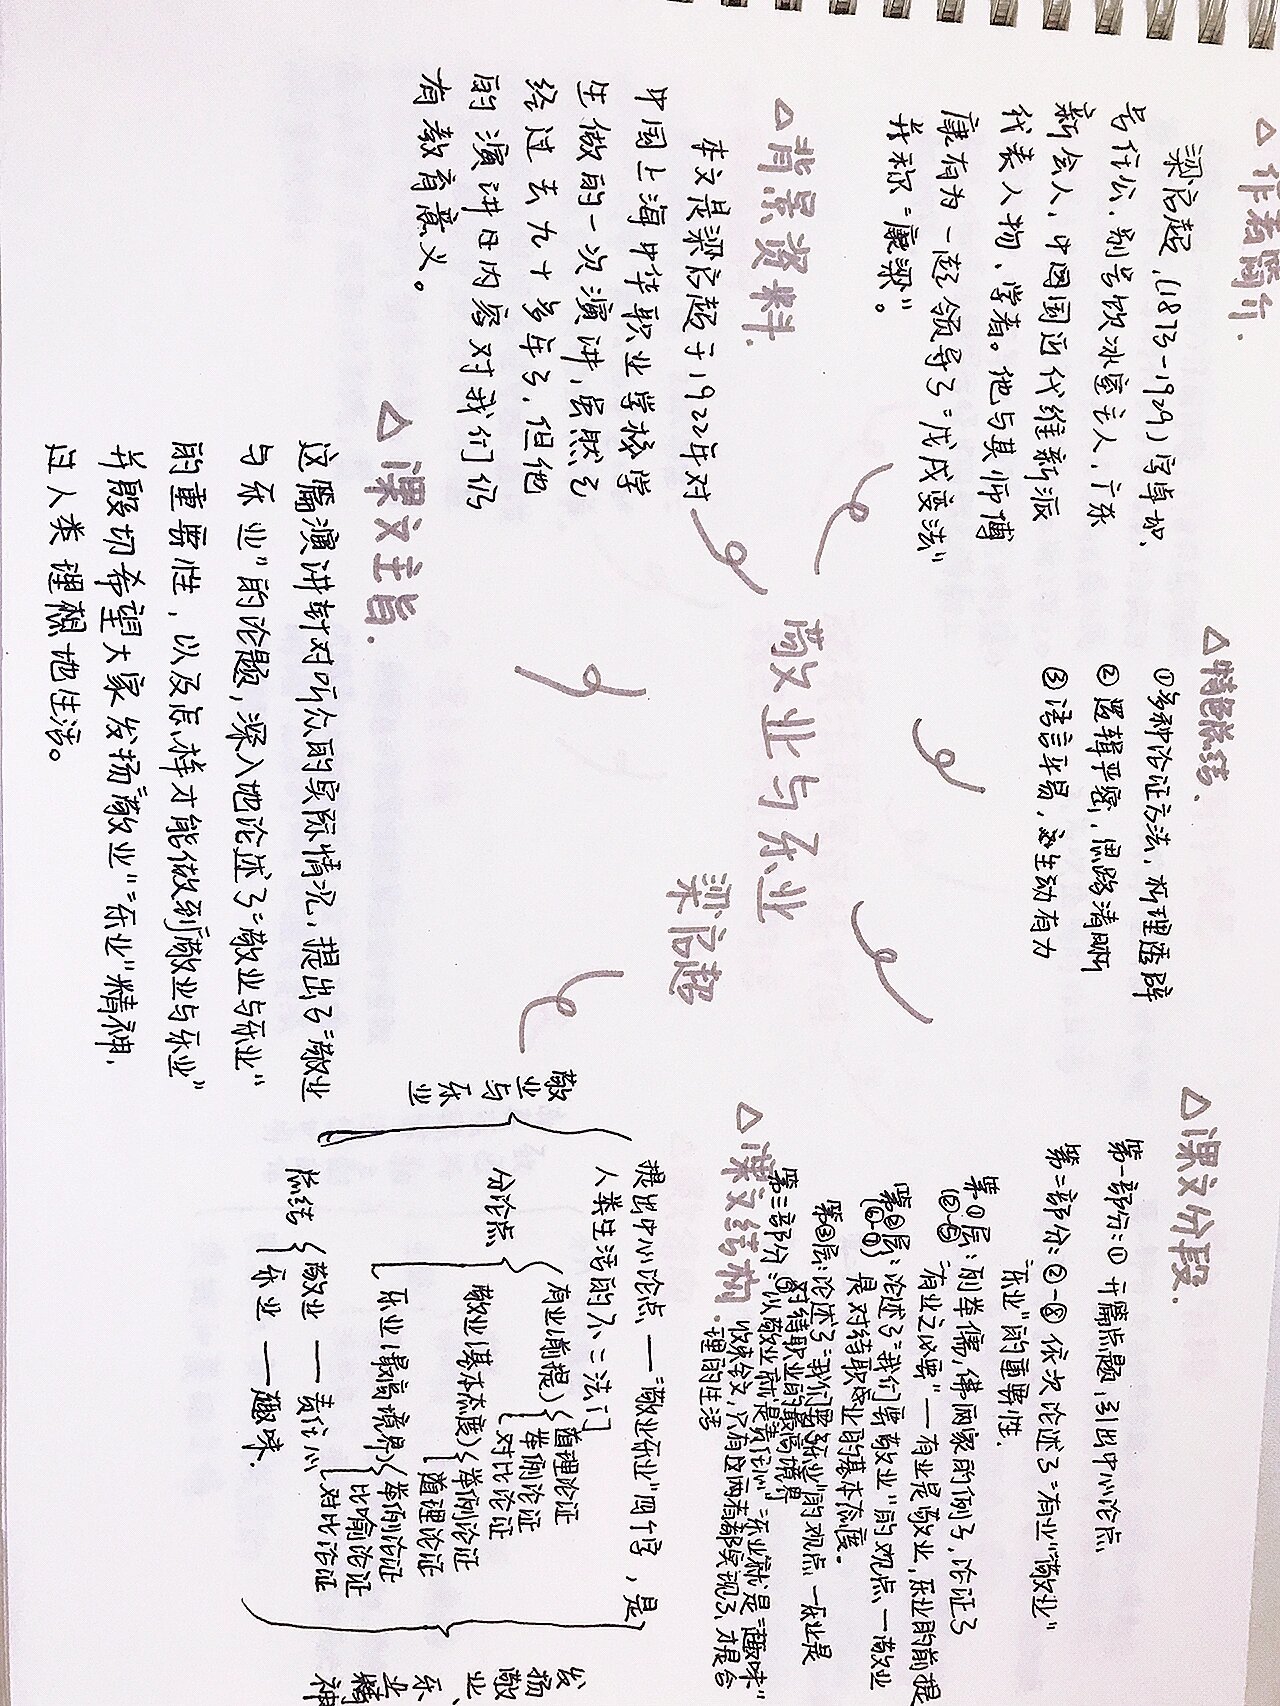 敬业与乐业
梁启超
△作者简介.
梁启超,(1873-1929)字卓如、
号任公,别号饮冰室主人,广东
新会人,中国近代维新派
代表人物,学者。他与其师博
康有为一起领导了“戊戌变法”
并称“康梁”。
△背景资料.
本文是梁启超于1922年对
中国上海中华职业学校学
生做的一次演讲,虽然已
经过去九十多年了,但他
的演讲日内容对我们仍
有教育意义。
△课文主旨.
这篇演讲针对听众的实际情况,提出了“敬业
与乐业”的论题,深入地论述了“敬业与乐业”
的重要性,以及怎样才能做到“敬业与乐业”
并殷切希望大家发扬“敬业”“乐业”精神,
过人类理想地生活。
△特色总结.
①多种论证方法,析理透辟
②逻辑严密,思路清晰
③语言平易,亦生动有力
△课文分段.
第一部分:① 开篇点题,引出中心论点
第二部分:②-⑧依次论述了“有业”“敬业”
“乐业”的重要性.
第①层:列举儒,佛两家的例子,论证了
“有业之必要”—有业是敬业,乐业的前提
第②层:论述了“我们要敬业”的观点—敬业
是对待职业的基本态度.
第③层:论述了“我们要乐业”的观点—乐业是
对待职业的最高境界
第三部分:以“敬业就是责任心”“乐业就是“趣味”
收束全文,只有这两者都实现了,才是合
理的生活
△课文结构.
敬业与乐业
提出中心论点——“敬业乐业”四个字,是
人类生活的不二法门
分论点
有业(前提)
道理论证
举例论证
对比论证
敬业(基本态度)
举例论证
道理论证
乐业(最高境界)
举例论证
比喻论证
对比论证
总结
敬业——责任心
乐业——趣味.
发扬敬业、乐业精神